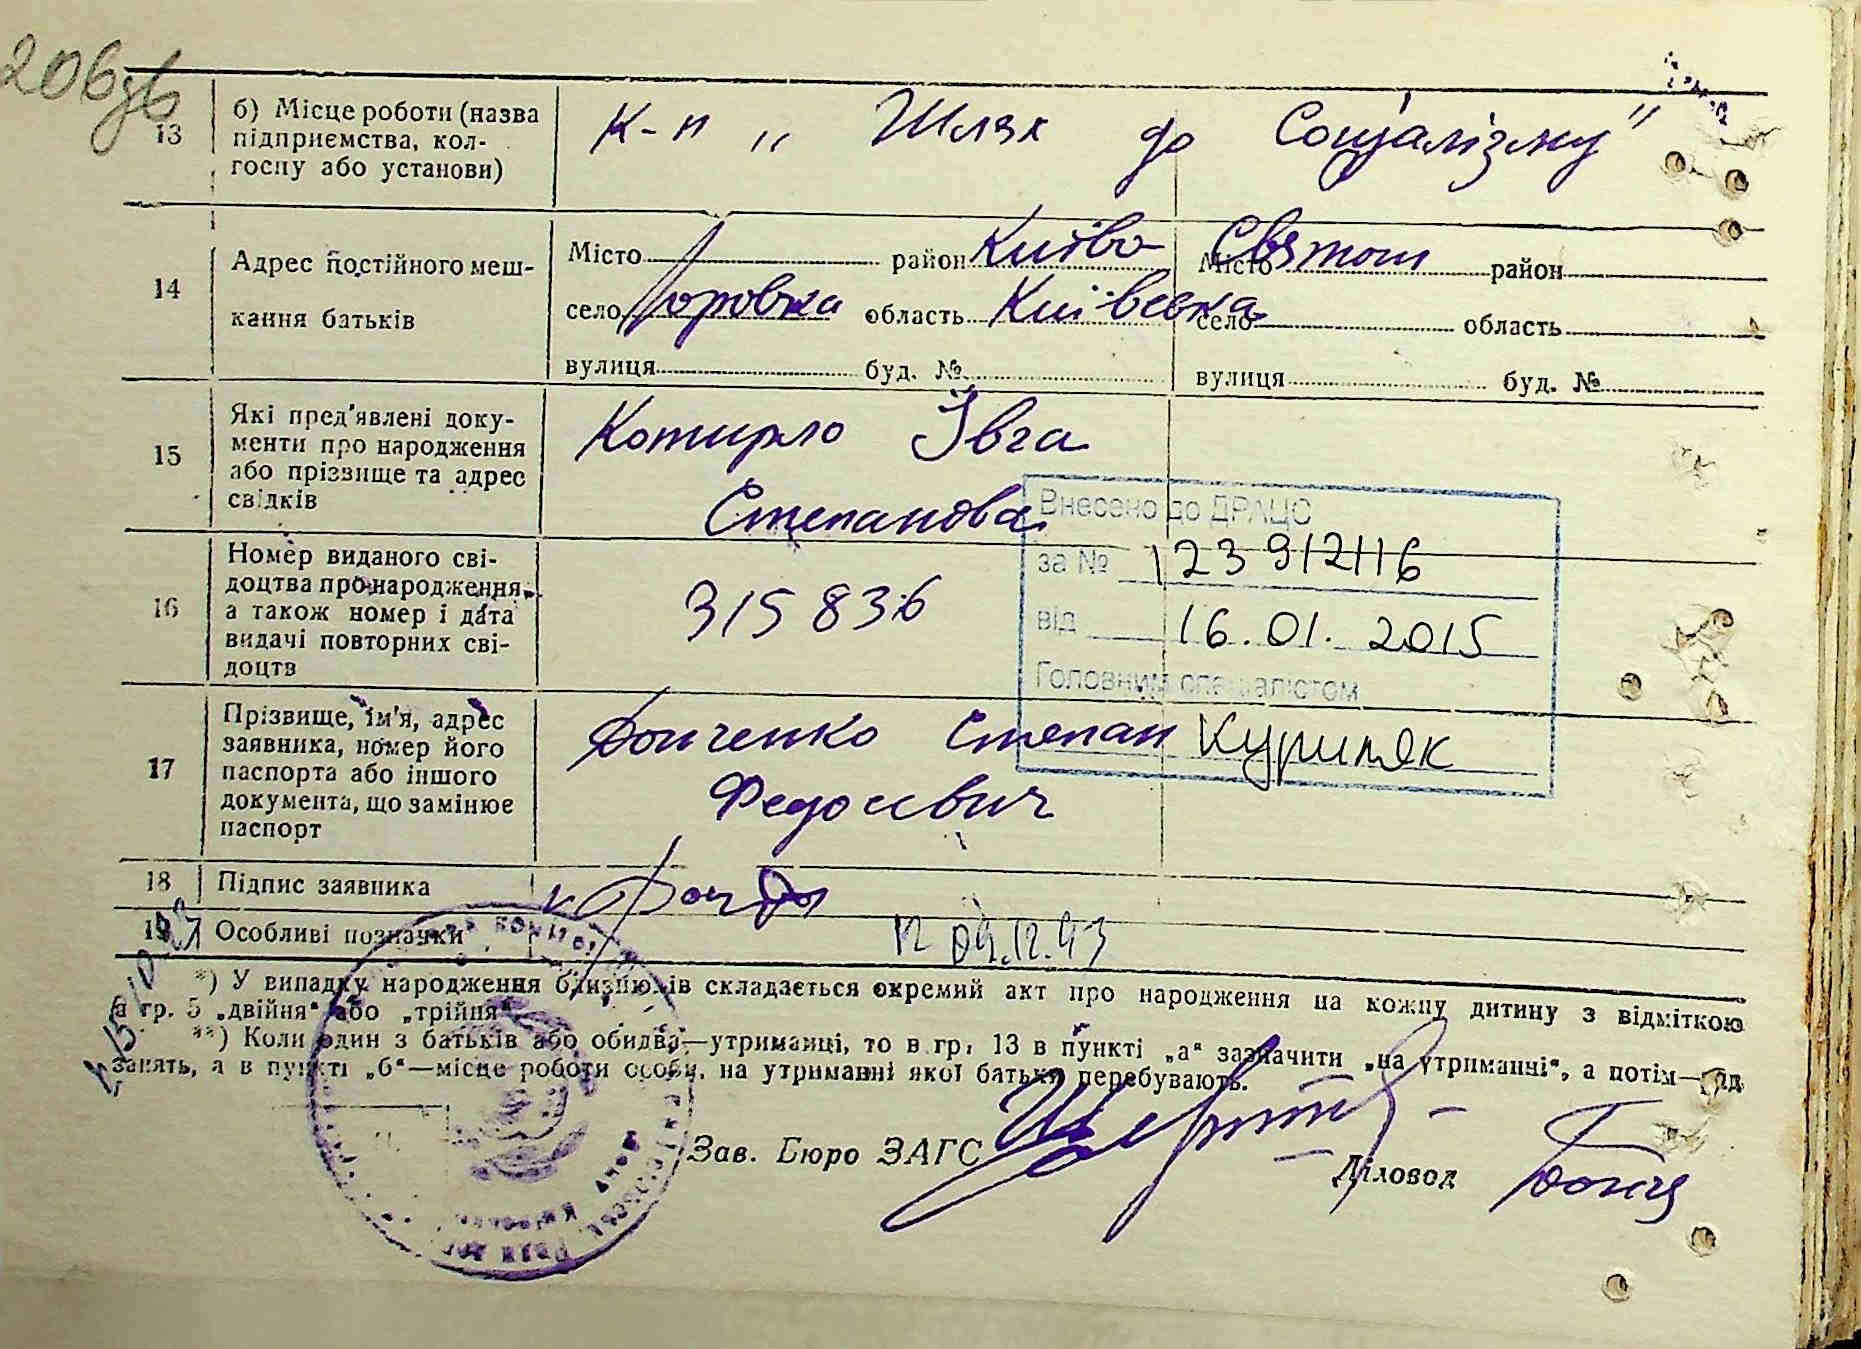 206 зв
13 б) Місце роботи (назва
підприємства, кол-
госпу або установи)
к-п „ Шлях до Соціалізму"
14 Адрес постійного меш-
кання батьків
Місто район Києво Святош
село Горовка область Київська
вулиця буд. №
Місто район
село область
вулиця буд. №
15 Які пред'явлені доку-
менти про народження
або прізвище та адрес
свідків
Котирло Івга
Степанова
16 Номер виданого сві-
доцтва про народження,
а також номер і дата
видачі повторних сві-
доцтв
315836
Внесено до ДРАЦС
за № 12391211б
від 16.01.2015
Головним спеціалістом
Куриляк
17 Прізвище, ім'я, адрес
заявника, номер його
паспорта або іншого
документа, що замінює
паспорт
Донченко Степан
Федосієвич
18 Підпис заявника
19 Особливі позначки
*) У випадку народження близнюків складається окремий акт про народження на кожну дитину з відміткою
в гр. 5 „двійня" або „трійня".
**) Коли один з батьків або обидва—утриманці, то в гр. 13 в пункті „а" зазначити „на утриманні", а потім—рід
занять, а в пункті „б"—місце роботи особи, на утриманні якої батьки перебувають.
Зав. Бюро ЗАГС
Діловод